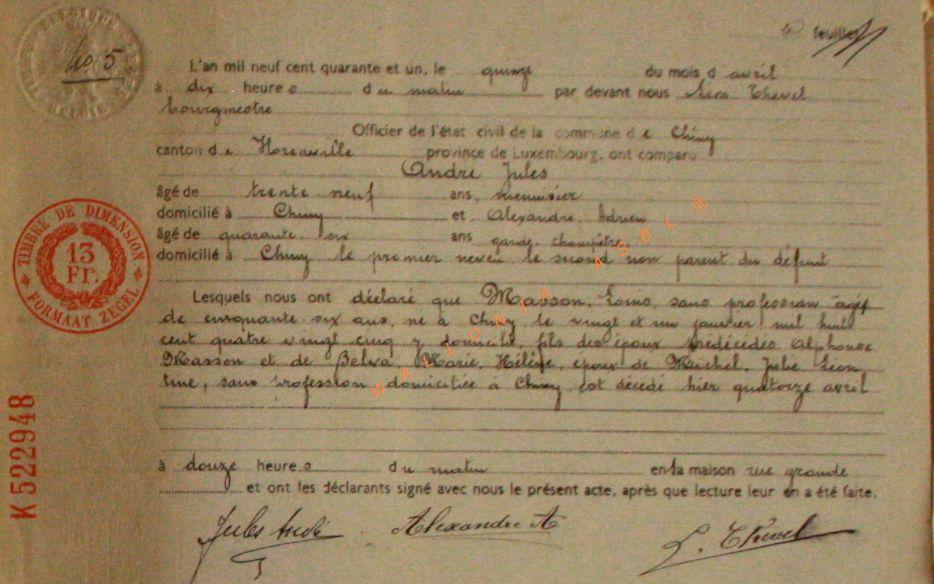 No 5
feuillet
L'an mil neuf cent quarante et un, le quinze du mois d avril
à dix heures du matin par devant nous Léon Thevel
bourgmestre
Officier de l'état civil de la commune de Chiny
canton de Florenville province de Luxembourg, ont comparu
André Jules
âgé de trente neuf ans, menuisier
domicilié à Chiny et, Alexandre, Adrien
âgé de quarante six ans garde champêtre
domicilié à Chiny le premier neveu le second non parent du défunt
Lesquels nous ont déclaré que Masson, Louis, sans profession âgé
de cinquante six ans, né à Chiny le vingt et un janvier mil huit
cent quatre vingt cinq y domicilié, fils des époux prédécédés Alphonse
Masson et de Belva, Marie, Hélène, époux de Michel, Julie Léon
tine, sans profession domiciliée à Chiny, est décédé hier quatorze avril
à douze heures du matin en sa maison rue grande
et ont les déclarants signé avec nous le présent acte, après que lecture leur en a été faite.
Jules André Alexandre A L. Thevel
TIMBRE DE DIMENSION
13
Fr.
FORMAAT ZEGEL
K 522948
WALLONIA ASBL ®